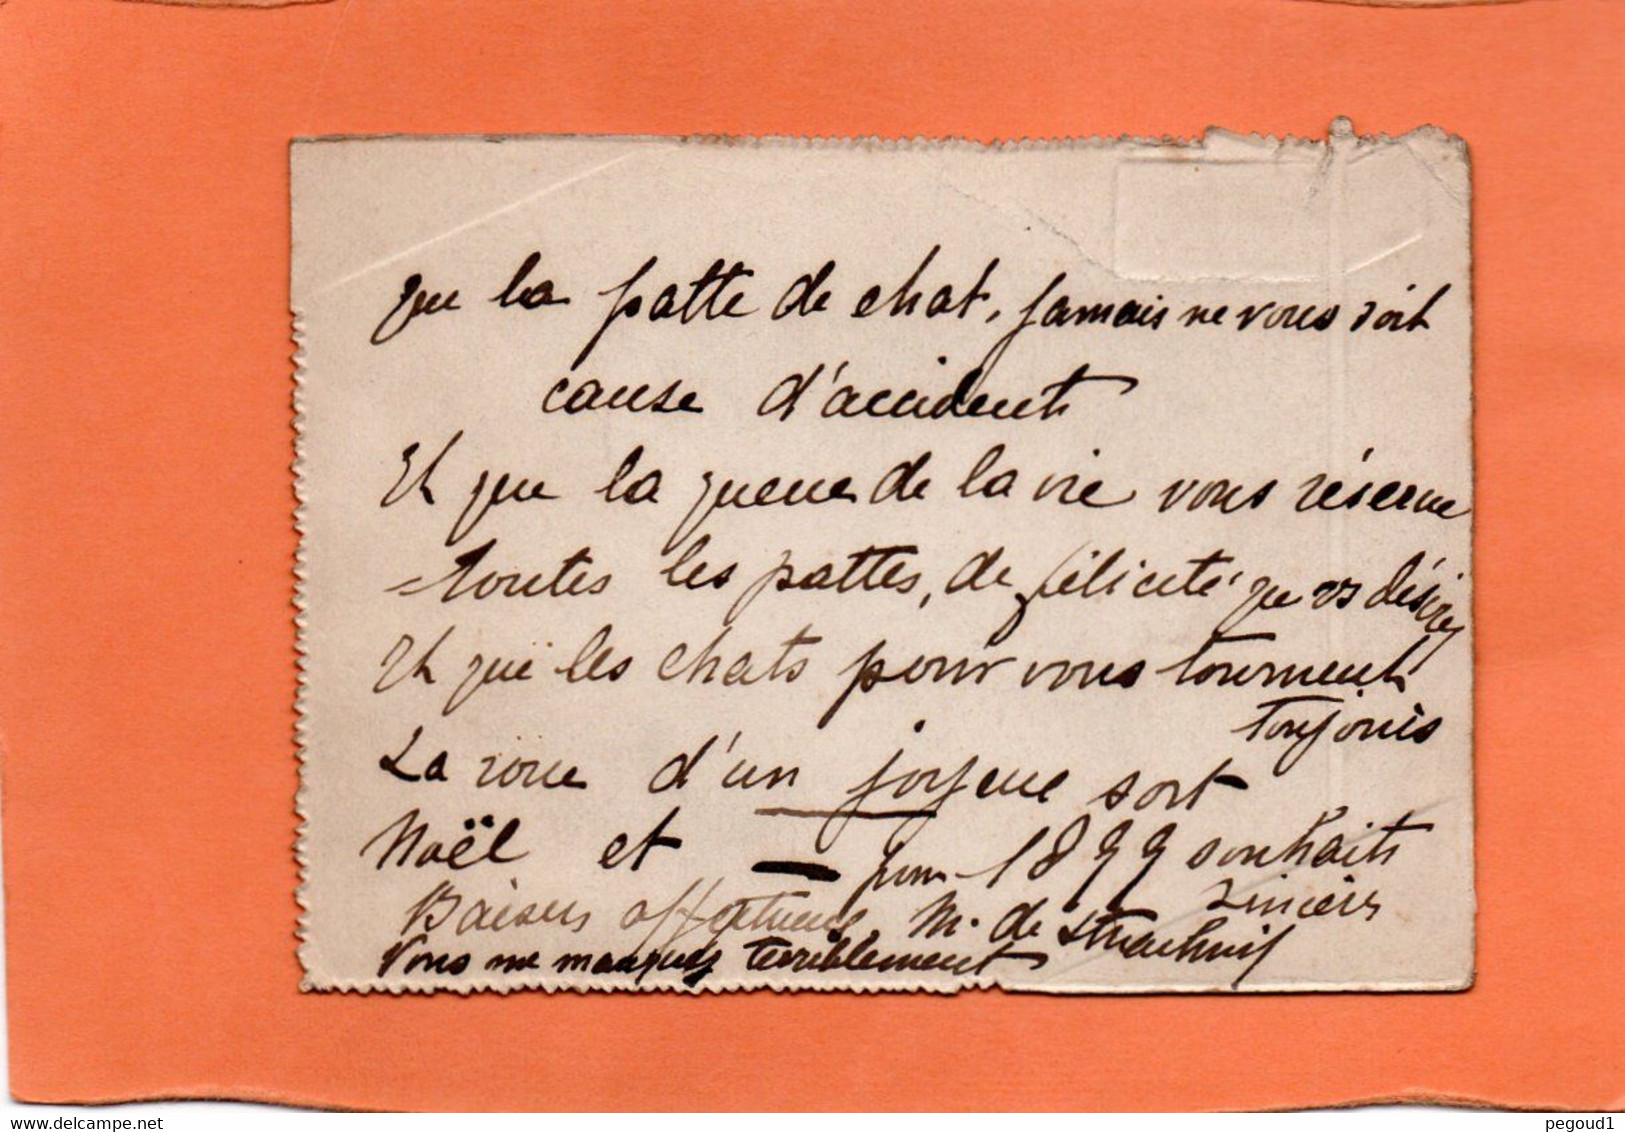 que la patte de chat, jamais ne vous soit
cause d'accident
Et que la queue de la vie vous réserve
toutes les pattes, de félicité que vs désirez
Et que les chats pour vous tournent
toujours
La roue d'un joyeux sort
Noël et — pour 1899 souhaits
sincères
Baisers affectueux, M. de
Vous me manquez terriblement
delcampe.net
pegoud1